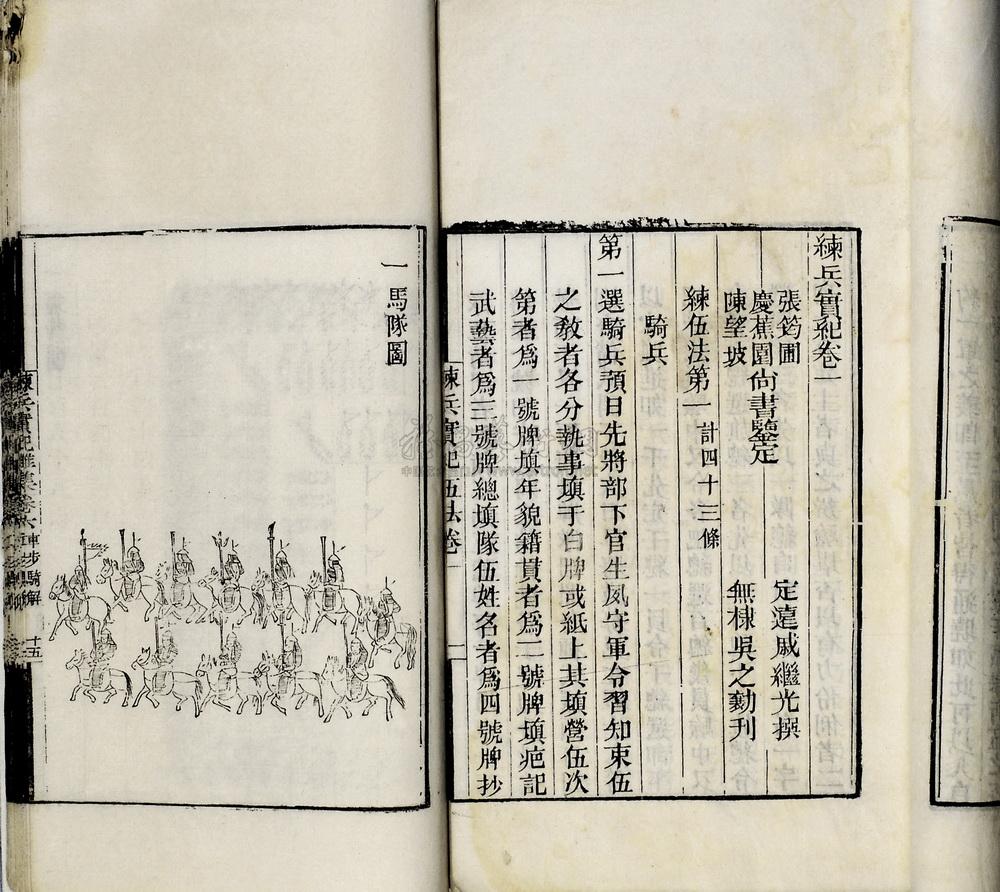 練兵實紀卷一
張筠圃
慶蕉園尙書鑒定
陳望坡
定遠戚繼光撰
無棣吳之勷刊
練伍法第一 計四十三條
騎兵
第一選騎兵預日先將部下官生夙守軍令習知束伍
之敎者各分執事填于白牌或紙上其填營伍次
第者爲一號牌填年貌籍貫者爲二號牌填疤記
武藝者爲三號牌總填隊伍姓名者爲四號牌抄
練兵實紀 伍法卷一 一
一馬隊圖
練兵實紀雜集卷六 車步騎解 十五